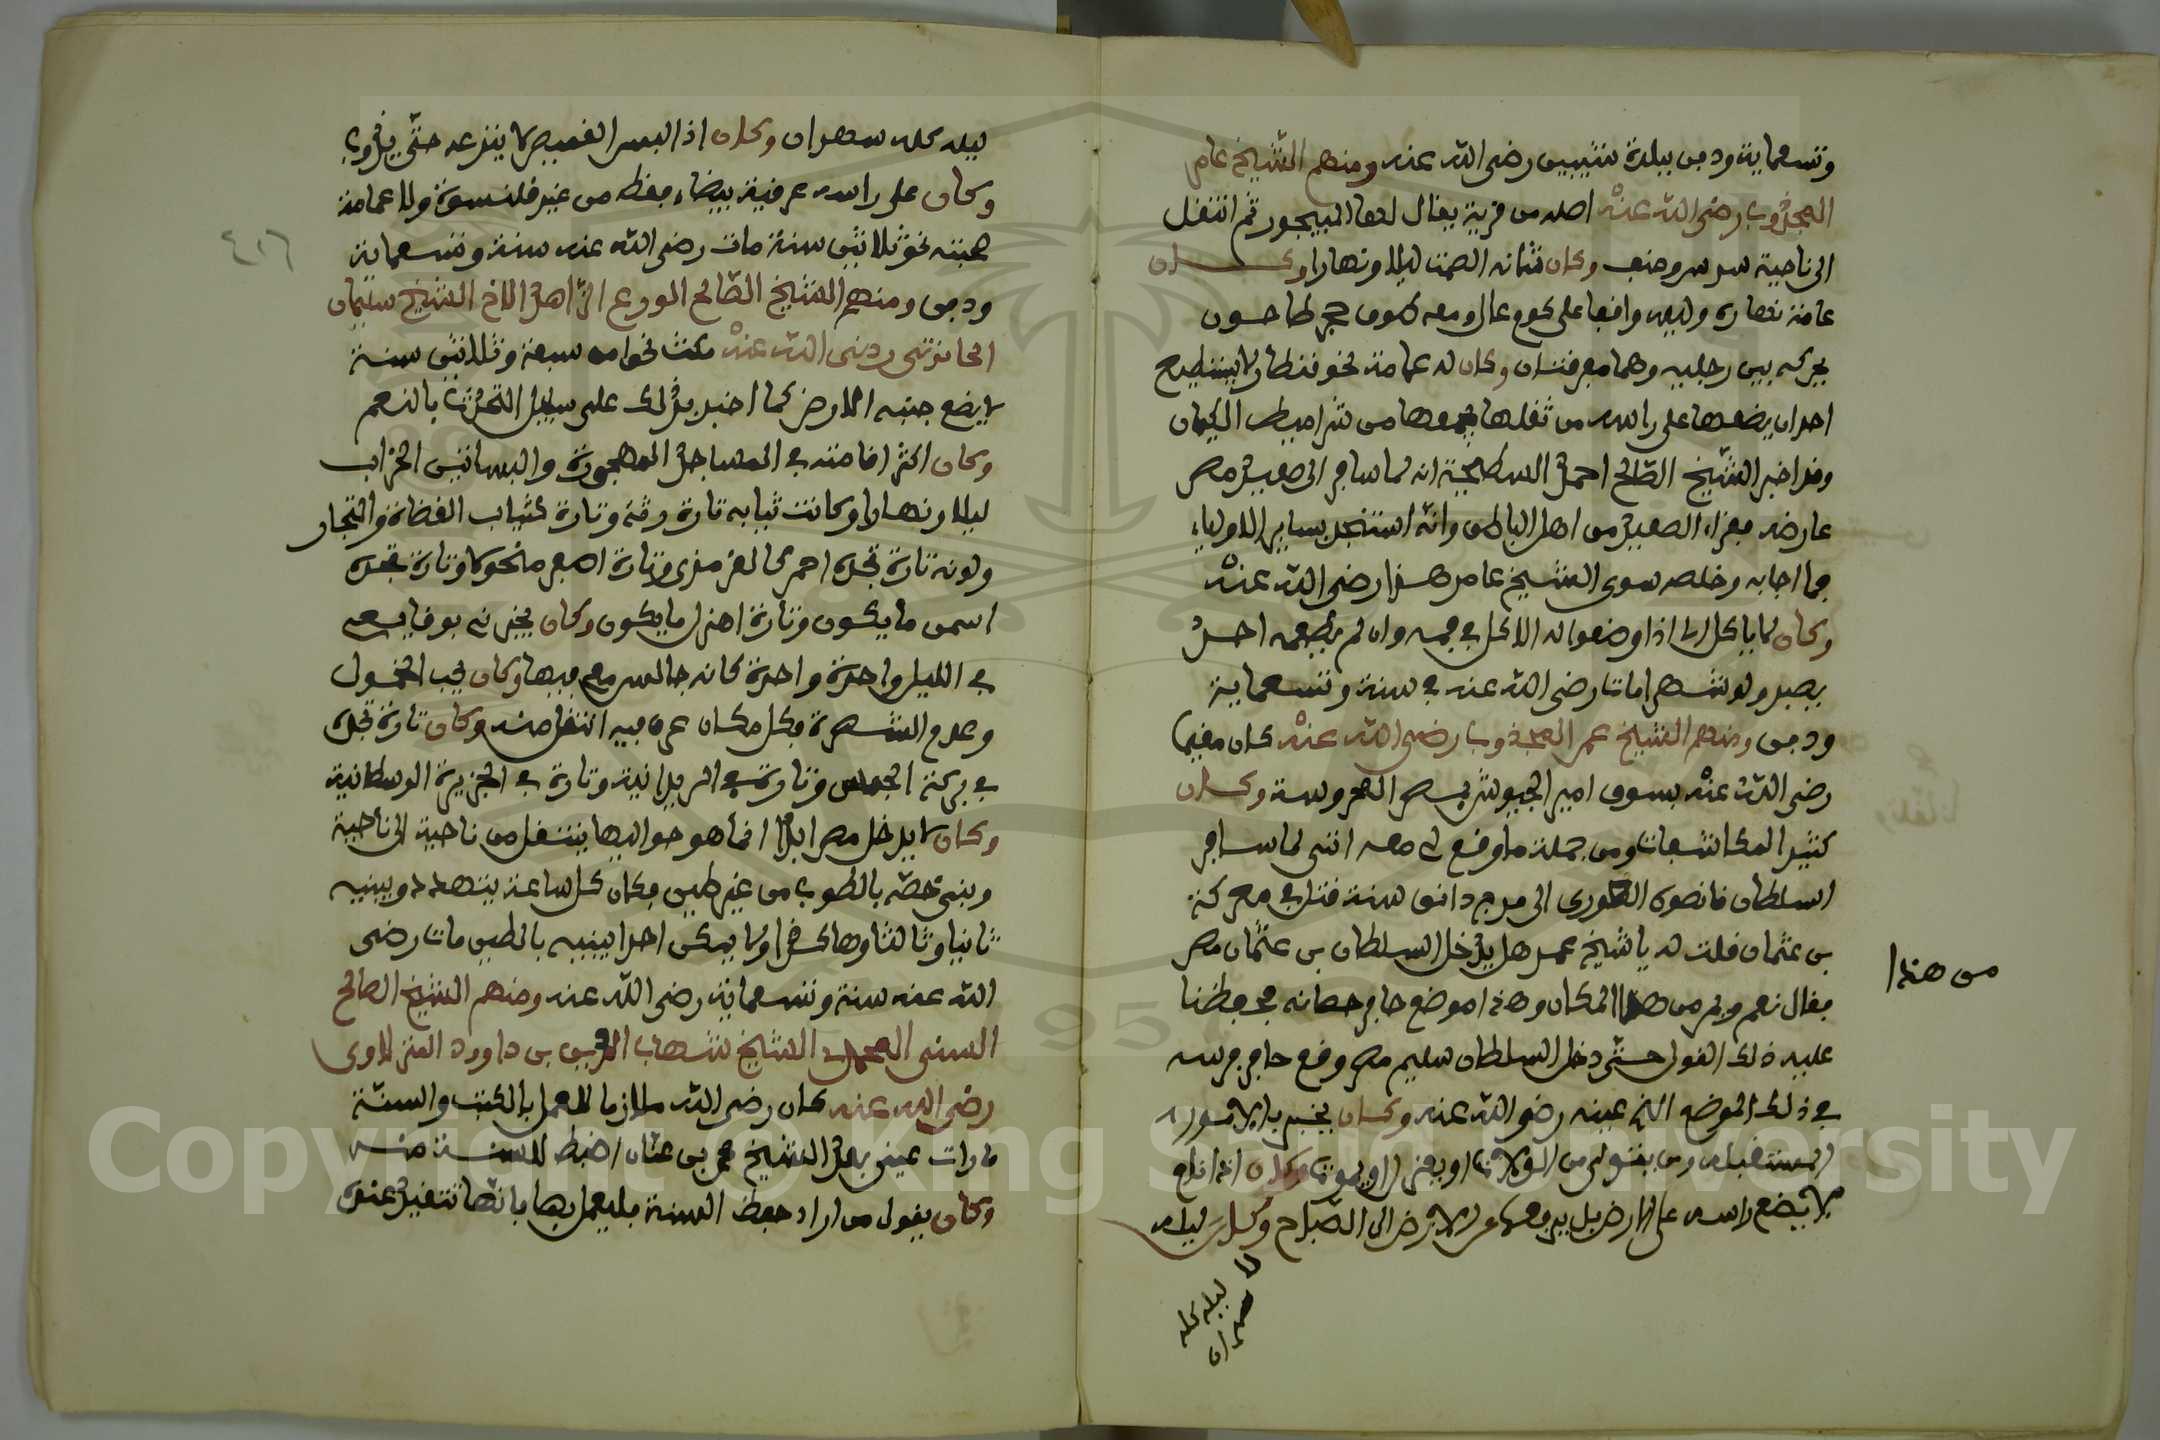 وتسعماية ودفن ببلدة شيبين رضي الله عنه ومنهم الشيخ عامر
المجذوب رضى الله عنه اصله من قرية يقال لها البيجور ثم انتقل
الى ناحية سرس وكان شانه الصمت ليلا ونهارا وكان
عامة نهاره وليله واقفا على كوم عال ومعه طوف حجر طاحون
يحركه بين رجليه وهما معرفتان وكان له عمامة نحو قنطار لا يستطيع
احد ان يضعها على راسه من ثقلها جمعها من شراميط الكيمان
وقد اخبر الشيخ الصالح احمد السطيحة انه لما سافر الى صعيد مصر
عارضه فقراء الصعيد من اهل الباطن وانه استنجد بساير الاولياء
فما اجابه وخلصه سوى الشيخ عامر هذا رضى الله عنه
وكان لا ياكل الا اذا وضعوا له الاكل في فمه وان لم يطعمه احد
يصبر ولو شهرا مات رضى الله عنه في سنة وتسعماية
ودفن ومنهم الشيخ عمر المجذوب رضى الله عنه كان مقيما
رضى الله عنه بسوق امير الجيوش بمصر المحروسة وكان
كثير المكاشفات ومن جملة ما وقع لي معه انني لما سافر
السلطان قانصوه الغورى الى مرج دابق سنة قتل في معركة
بن عثمان قلت له يا شيخ عمر هل يدخل السلطان بن عثمان مصر
فقال نعم ويمر من هذا المكان وهذا موضع حافر حصانه فحفظنا
عليه ذلك القول حتى دخل السلطان سليم مصر وقع حافر فرسه
في ذلك الموضع الذي عينه رضى الله عنه وكان يخبر بالامور
المستقبله ومن يتولى من الولاة او يعزل او يموت وكان اذا نام
لا يضع راسه على الارض بل يرفعها عن الارض الى الصباح وكان ليله
ليله كله
سهران
من هنا
ليله كله سهران وكان اذا لبس القميص لا ينزعه حتى يذوب
وكان على راسه عرقية بيضاء فقط من غير قلنسوة ولا عمامة
صحبته نحو ثلاثين سنة مات رضى الله عنه سنة وتسعماية
ودفن ومنهم الشيخ الصالح الورع الزاهد الاخ الشيخ سليمان
الحانوتى رضى الله عنه مكث نحوا من سبعة وثلاثين سنة
لا يضع جنبه الارض كما اخبر بذلك على سبيل التحدث بالنعم
وكان اكثر اقامته في المساجد المهجورة والبساتين الخراب
ليلا ونهارا وكانت ثيابه تارة رثة وتارة كثياب القضاة والتجار
ولونه تارة تجده احمر كالقرمزى وتارة اصفر منحولا وتارة تجده
اسمن ما يكون وتارة اهزل ما يكون وكان يخبرني بوقايعى
في الليل واحدة واحدة كانه جالس معى فيها وكان يحب الخمول
وعدم الشهرة وكل مكان عرف فيه انتقل منه وكان تارة تجده
في بركة الحبش وتارة في الريدانية وتارة في الجزيرة الوسطانية
وكان لا يدخل مصر ابدا انما هو حواليها يتنقل من ناحية الى ناحية
وبنى خصه بالطوب من غير طين فكان كل ساعة يتهدد ويبنيه
ثانيا وثالثا وهاكذا ولا يمكن احدا يبنيه بالطين مات رضى
الله عنه سنة وتسعماية رضى الله عنه ومنهم الشيخ الصالح
السنى المحمدى الشيخ شهاب الدين بن داوود المنزلاوى
رضى الله عنه كان رضى الله ملازما للعمل بالكتب والسنة
ما رات عينى بعد الشيخ محمد بن عنان اضبط للسنة منه
وكان يقول من اراد حفظ السنة فليعمل بها فانها تتقيد عنده
٤١٦